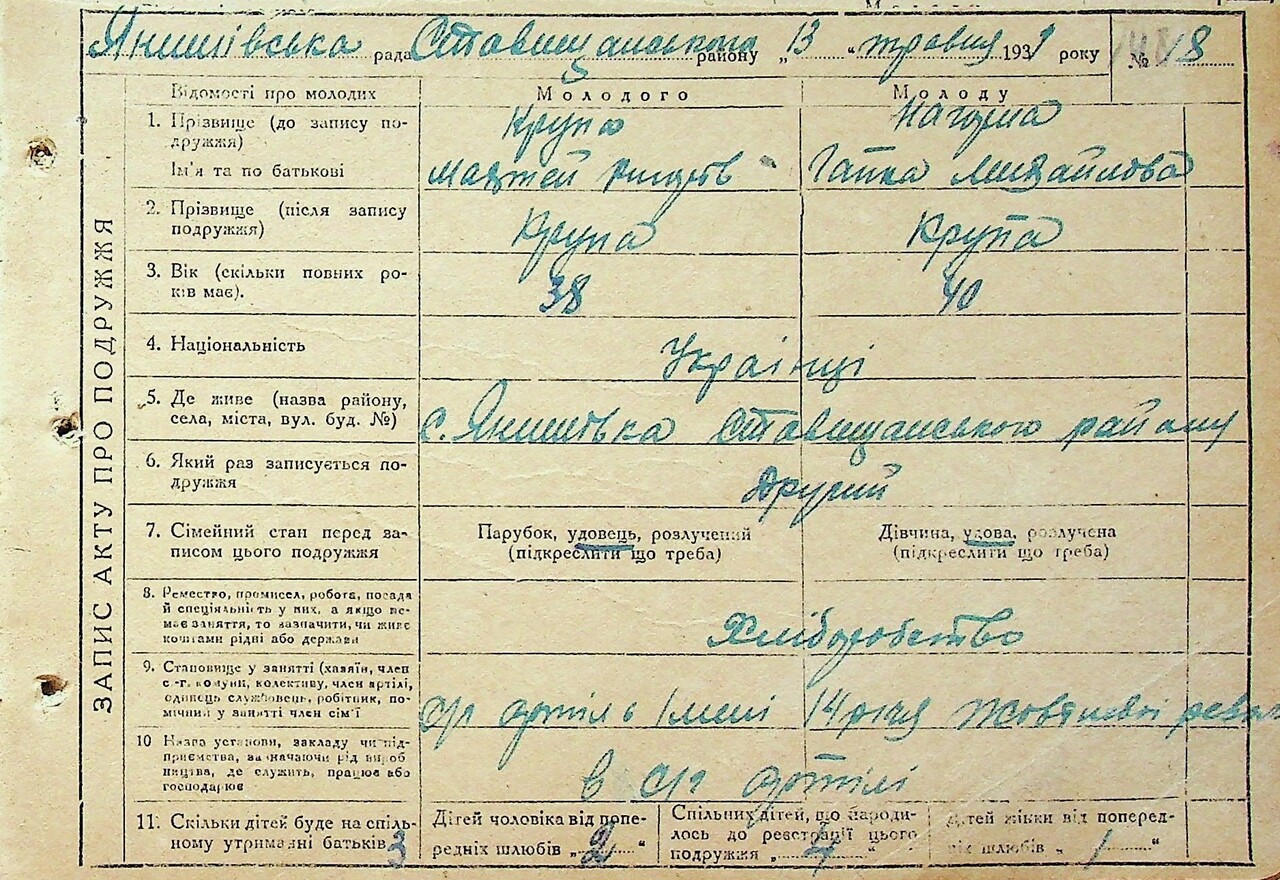 Янишівська рада Ставищанського району „13 “ травня 1931 року № 18
ЗАПИС АКТУ ПРО ПОДРУЖЖЯ
Відомості про молодих
Молодого
Молоду
1. Прізвище (до запису по-
дружжя)
Крупа
Нагорна
Ім'я та по батькові
Матей
Гапка Михайлова
2. Прізвище (після запису
подружжя)
Крупа
Крупа
3. Вік (скільки повних ро-
ків має).
38
40
4. Національність
Українці
5. Де живе (назва району,
села, міста, вул. буд. №)
с. Янишівка Ставищанського району
6. Який раз записується по-
дружжя
Другий
7. Сімейний стан перед за-
писом цього подружжя
Парубок, удовець, розлучений
(підкреслити що треба)
Дівчина, удова, розлучена
(підкреслити що треба)
8. Ремество, промисел, робота, посада
й спеціяльність у них, а якщо не-
має заняття, то зазначити, чи живе
коштами рідні або держави
Хліборобство
9. Становище у занятті (хазяїн, член
с.-г. комуни, колективу, член артілі,
одинець службовець, робітник, по-
мічний у занятті член сім'ї
с/г артіль імені 14 річя Жовтневої рев
10 Назва установи, закладу чи під-
приємства, зазначаючи рід вироб
ництва, де служить, працює або
господарює
в с/г артілі
11. Скільки дітей буде на спіль-
ному утриманні батьків 3
Дітей чоловіка від попе-
редніх шлюбів „ 2 “
Спільних дітей, що народи-
лось до реєстрації цього
подружжя „ “
Дітей жінки від поперед-
ніх шлюбів „ 1 “